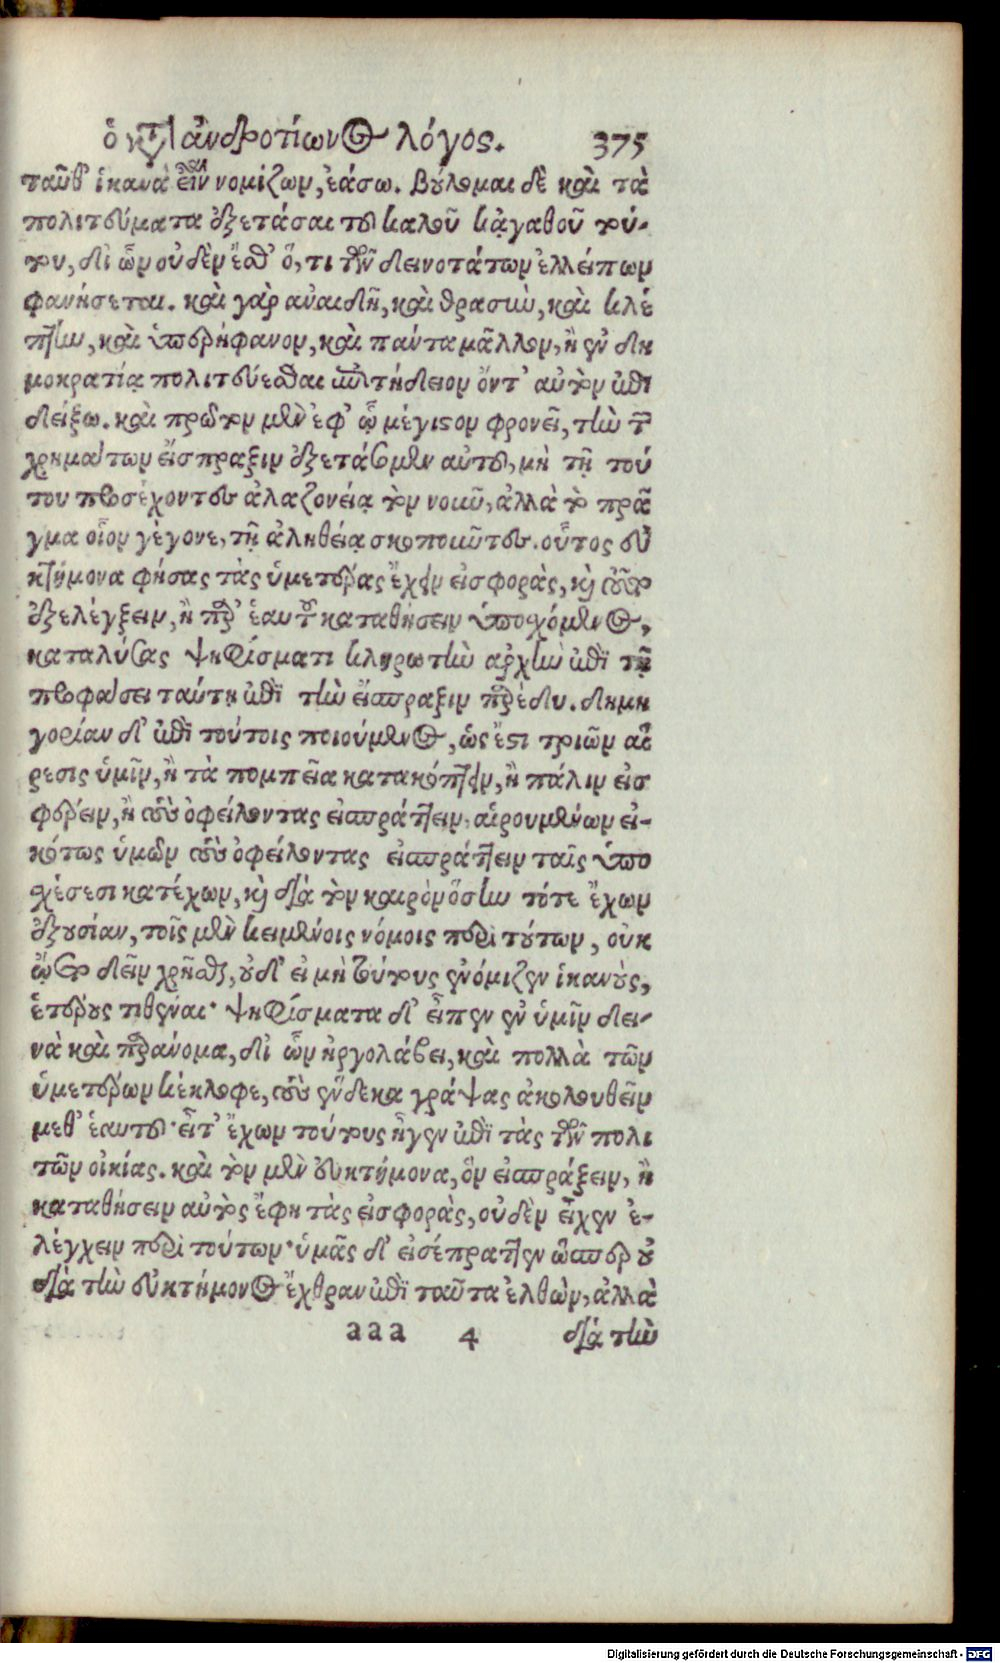 ὁ κτ' ἀνδροτίωνος λόγος. 375
ταῦθ' ἱκανὰ εἶναι νομίζων, ἐάσω. Βούλομαι δὲ καὶ τὰ
πολιτεύματα ἐξετάσαι τοῦ καλοῦ κἀγαθοῦ τού-
του, δι' ὧν οὐδὲν ἔσθ' ὅ, τι τῶν δεινοτάτων ἐλλείπων
φανήσεται. καὶ γὰρ ἀναιδῆ, καὶ θρασὺν, καὶ κλέ
πτην, καὶ ὑπερήφανον, καὶ πάντα μᾶλλον, ἢ ἐν δη
μοκρατίᾳ πολιτεύεσθαι ἐπιτήδειον ὄντ' αὐτὸν ἐπι
δείξω. καὶ πρῶτον μὲν ἐφ' ᾧ μέγιστον φρονεῖ, τὴν τῶν
χρημάτων εἴσπραξιν ἐξετάσωμεν αὐτοῦ, μὴ τῇ τού
του προσέχοντες ἀλαζονείᾳ τὸν νοῦν, ἀλλὰ τὸ πρᾶ
γμα οἷον γέγονε, τῇ ἀληθείᾳ σκοποῦντες. οὗτος εὐ
κτήμονα φήσας τὰς ὑμετέρας ἔχειν εἰσφορὰς, καὶ τοῦτο
ἐξελέγξειν, ἢ παρ' ἑαυτοῦ καταθήσειν ὑποσχόμενος,
καταλύσας ψηφίσματι κληρωτὴν ἀρχὴν ἐπὶ τῇ
προφάσει ταύτῃ ἐπὶ τὴν εἴσπραξιν παρέδυ. δημη
γορίαν δ' ἐπὶ τούτοις ποιούμενος, ὡς ἔστι τριῶν αἵ
ρεσις ὑμῖν, ἢ τὰ πομπεῖα κατακόπτειν, ἢ πάλιν εἰσ
φέρειν, ἢ τοὺς ὀφείλοντας εἰσπράττειν, αἱρουμένων εἰ-
κότως ὑμῶν τοὺς ὀφείλοντας εἰσπράττειν ταῖς ὑπο
σχέσεσι κατέχων, καὶ διὰ τὸν καιρὸν ὅστις ἦν τότε ἔχων
ἐξουσίαν, τοῖς μὲν κειμένοις νόμοις περὶ τούτων, οὐκ
ᾤετο δεῖν χρῆσθαι, οὐδ' εἰ μὴ τούτους ἐνόμιζεν ἱκανοὺς,
ἑτέρους τιθέναι· ψηφίσματα δ' εἶπεν ἐν ὑμῖν δει-
νὰ καὶ παράνομα, δι' ὧν ἠργολάβει, καὶ πολλὰ τῶν
ὑμετέρων κέκλοφε, τοὺς ἕνδεκα γράψας ἀκολουθεῖν
μεθ' ἑαυτοῦ· εἶτ' ἔχων τούτους ἦγεν ἐπὶ τὰς τῶν πολι
τῶν οἰκίας. καὶ τὸν μὲν εὐκτήμονα, ὃν εἰσπράξειν, ἢ
καταθήσειν αὐτὸς ἔφη τὰς εἰσφορὰς, οὐδὲν εἶχεν ἐ-
λέγχειν περὶ τούτων· ὑμᾶς δ' εἰσέπραττεν ὥσπερ οὐ
διὰ τὴν εὐκτήμονος ἔχθραν ἐπὶ ταῦτα ἐλθὼν, ἀλλὰ
aaa 4 διὰ τὴν
Digitalisierung gefördert durch die Deutsche Forschungsgemeinschaft - DFG